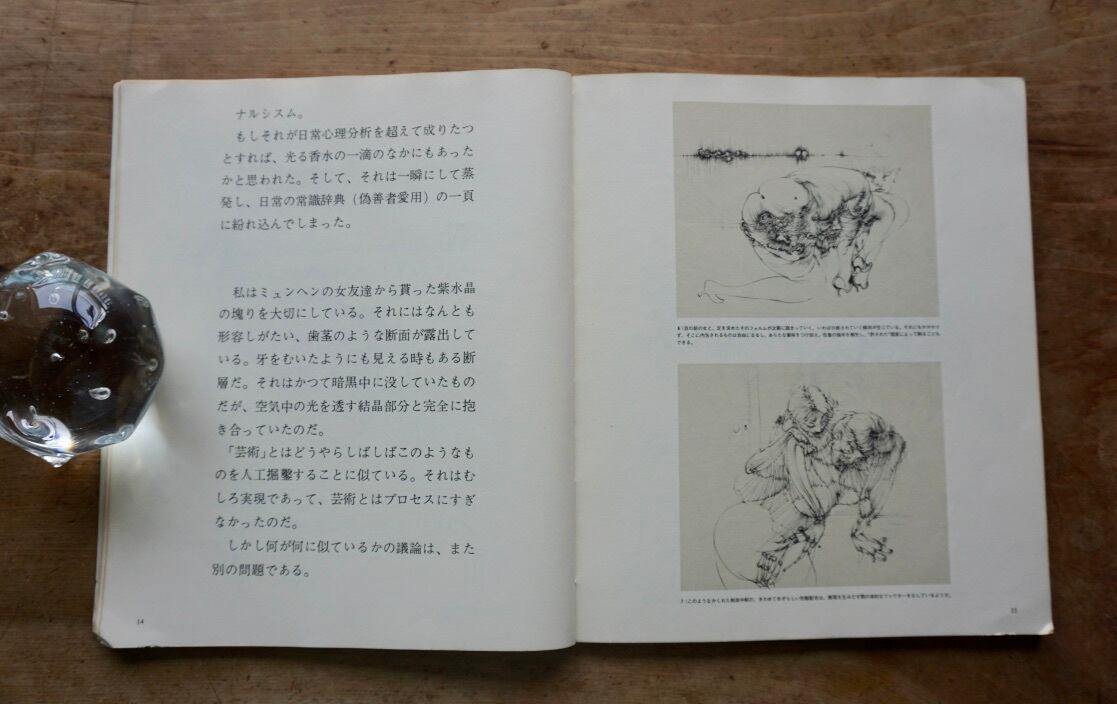 ナルシスム。
もしそれが日常心理分析を超えて成りたつ
とすれば、光る香水の一滴のなかにもあった
かと思われた。そして、それは一瞬にして蒸
発し、日常の常識辞典（偽善者愛用）の一頁
に紛れ込んでしまった。
私はミュンヘンの女友達から貰った紫水晶
の塊りを大切にしている。それにはなんとも
形容しがたい、歯茎のような断面が露出して
いる。牙をむいたようにも見える時もある断
層だ。それはかつて暗黒中に没していたもの
だが、空気中の光を透す結晶部分と完全に抱
き合っていたのだ。
「芸術」とはどうやらしばしばこのようなも
のを人工掘鑿することに似ている。それはむ
しろ実現であって、芸術とはプロセスにすぎ
なかったのだ。
しかし何が何に似ているかの議論は、また
別の問題である。
14
できる。